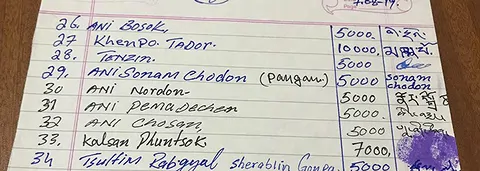 7.08.19.
26. ANI BOSOK, 5000.
27 Khenpo. TADOR. 10000.
28. TENZIN. 5000
29. ANI SONAM CHODON (Pangan.) 5000 sonam chodon
30 ANI Nordon 5000
31 ANI Pemadechen 5000
32 ANI CHOSAN, 5000
33. Kalsan Phuntsok. 7000,
34 Tsultim Rabgyal sherablin Gonpa. 5000